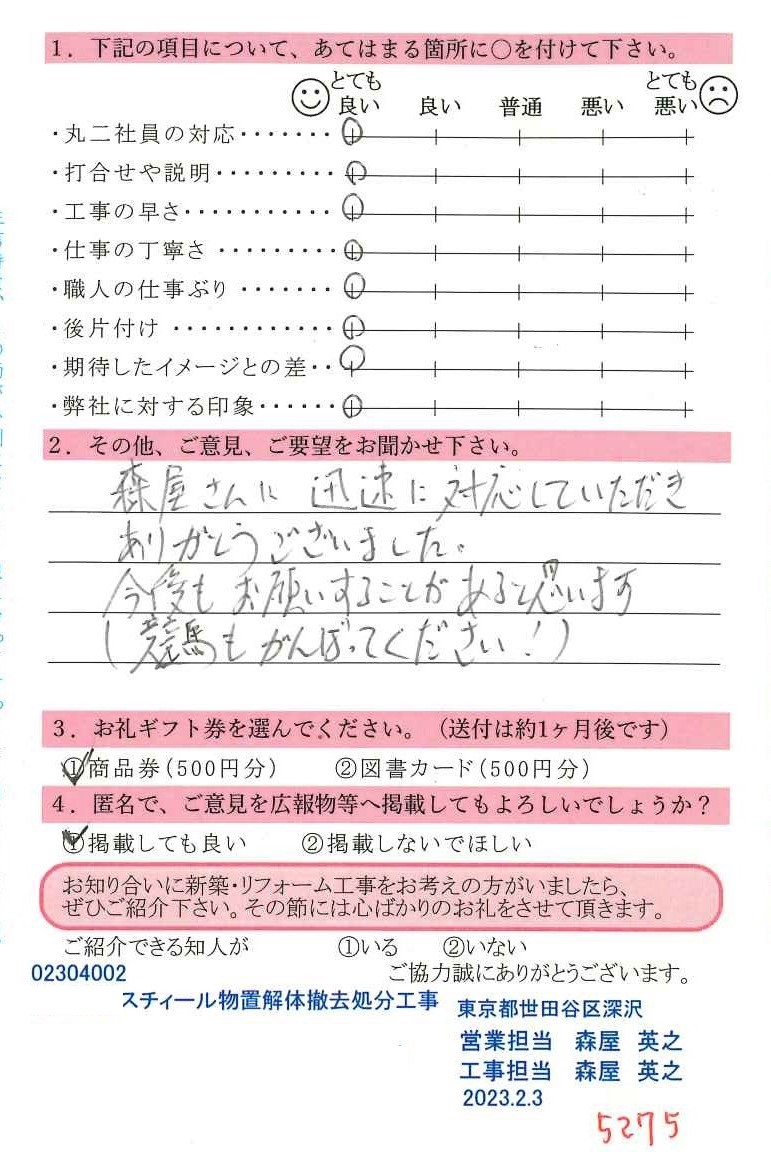 1. 下記の項目について、あてはまる箇所に○を付けて下さい。
とても良い 良い 普通 悪い とても悪い
・丸二社員の対応・・・・・・・
・打合せや説明・・・・・・・・・
・工事の早さ・・・・・・・・・・・
・仕事の丁寧さ・・・・・・・・・
・職人の仕事ぶり・・・・・・・
・後片付け・・・・・・・・・・・・
・期待したイメージとの差・・
・弊社に対する印象・・・・・・
2. その他、ご意見、ご要望をお聞かせ下さい。
森屋さんに 迅速に対応していただき
ありがとうございました。
今後もお願いすることがあると思います
(競馬もがんばってください!)
3. お礼ギフト券を選んでください。(送付は約1ヶ月後です)
①商品券(500円分) ②図書カード(500円分)
4. 匿名で、ご意見を広報物等へ掲載してもよろしいでしょうか?
①掲載しても良い ②掲載しないでほしい
お知り合いに新築・リフォーム工事をお考えの方がいましたら、
ぜひご紹介下さい。その節には心ばかりのお礼をさせて頂きます。
ご紹介できる知人が ①いる ②いない
02304002 ご協力誠にありがとうございます。
スチィール物置解体撤去処分工事 東京都世田谷区深沢
営業担当 森屋 英之
工事担当 森屋 英之
2023.2.3
5275